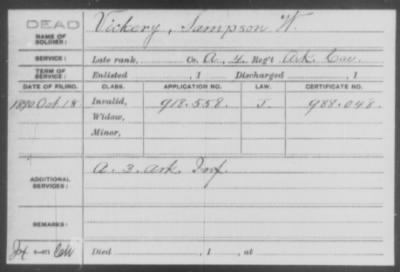 DEAD
NAME OF SOLDIER: Vickery, Sampson W.
SERVICE: Late rank, Co. A, 4, Reg't Ark Cav.
TERM OF SERVICE: Enlisted , 1 Discharged , 1
DATE OF FILING. CLASS. APPLICATION NO. LAW. CERTIFICATE NO.
1890 Oct. 18 Invalid, 918.558. J. 988.048.
Widow,
Minor,
ADDITIONAL SERVICES: A. 3. Ark. Inf.
REMARKS:
Inf and Cav Died , 1 , at